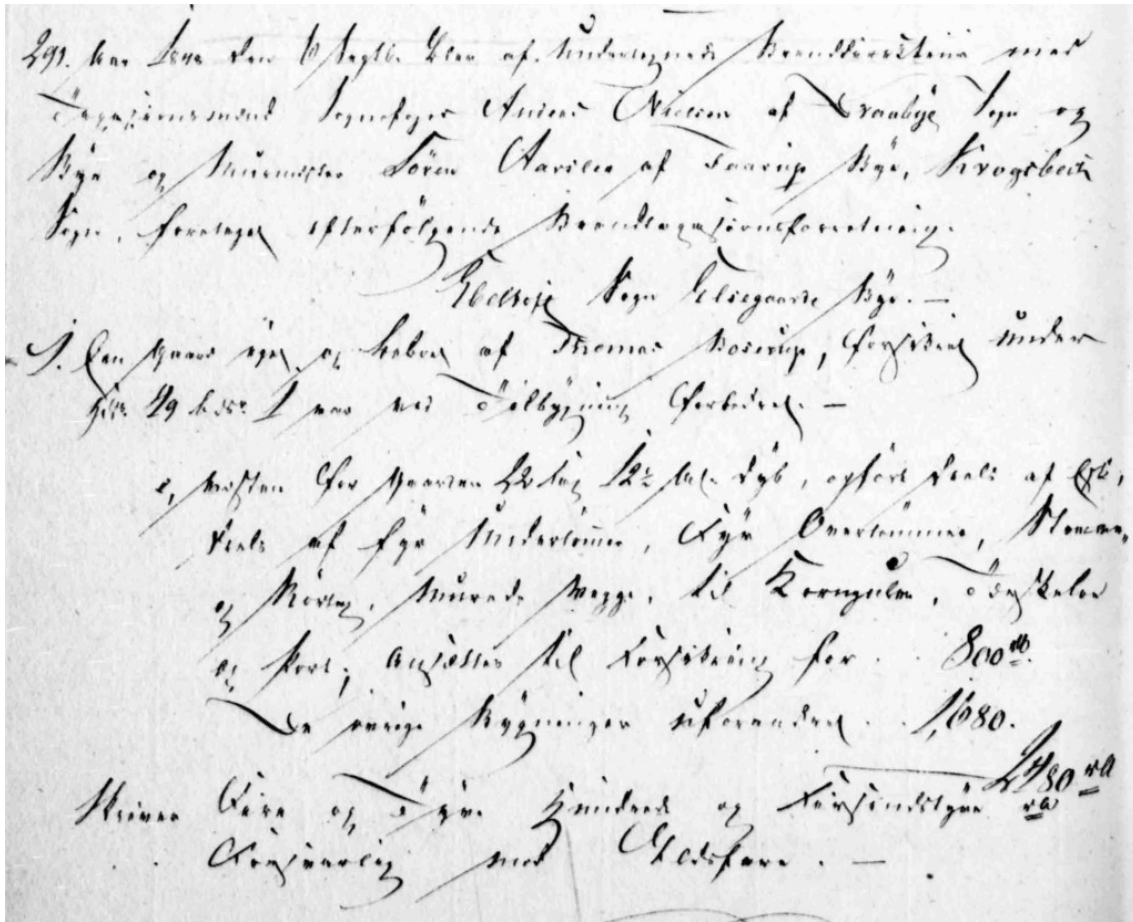 291. Aar 1848 den 6 Septbr. blev af Undertegnede Branddirecteur med
Taxationsmænd Sognefoged Anders Nielsen af Draabye Sogn og
Bye og Muurmester Sören af Taarup Bye, Krogsbech
Sogn, foretaget efterfölgende Brandtaxationsforretning.
Sogn Bye. —
1. Een Gaard eiet og beboet af Thomas Boserup, forsikret under
No. 1 var ved Tilbygning forbedret. —
e, Vesten for Gaarden 22 Fag 12½ Al. dyb, opfört deels af Eeg,
deels af Fyr Undertömmer, Fyr Overtömmer,
og, Murede Vægge, til Korngulve, Tærskeloe
og Port; Ansættes til Forsikring for . . 800 rb.
De övrige Bygninger uforandret . . 1,680.
2480 rb
Skriver Fire og Tyve Hundrede og Fiirsindstyve rb
Forsvarlig mod Ildsfare. —